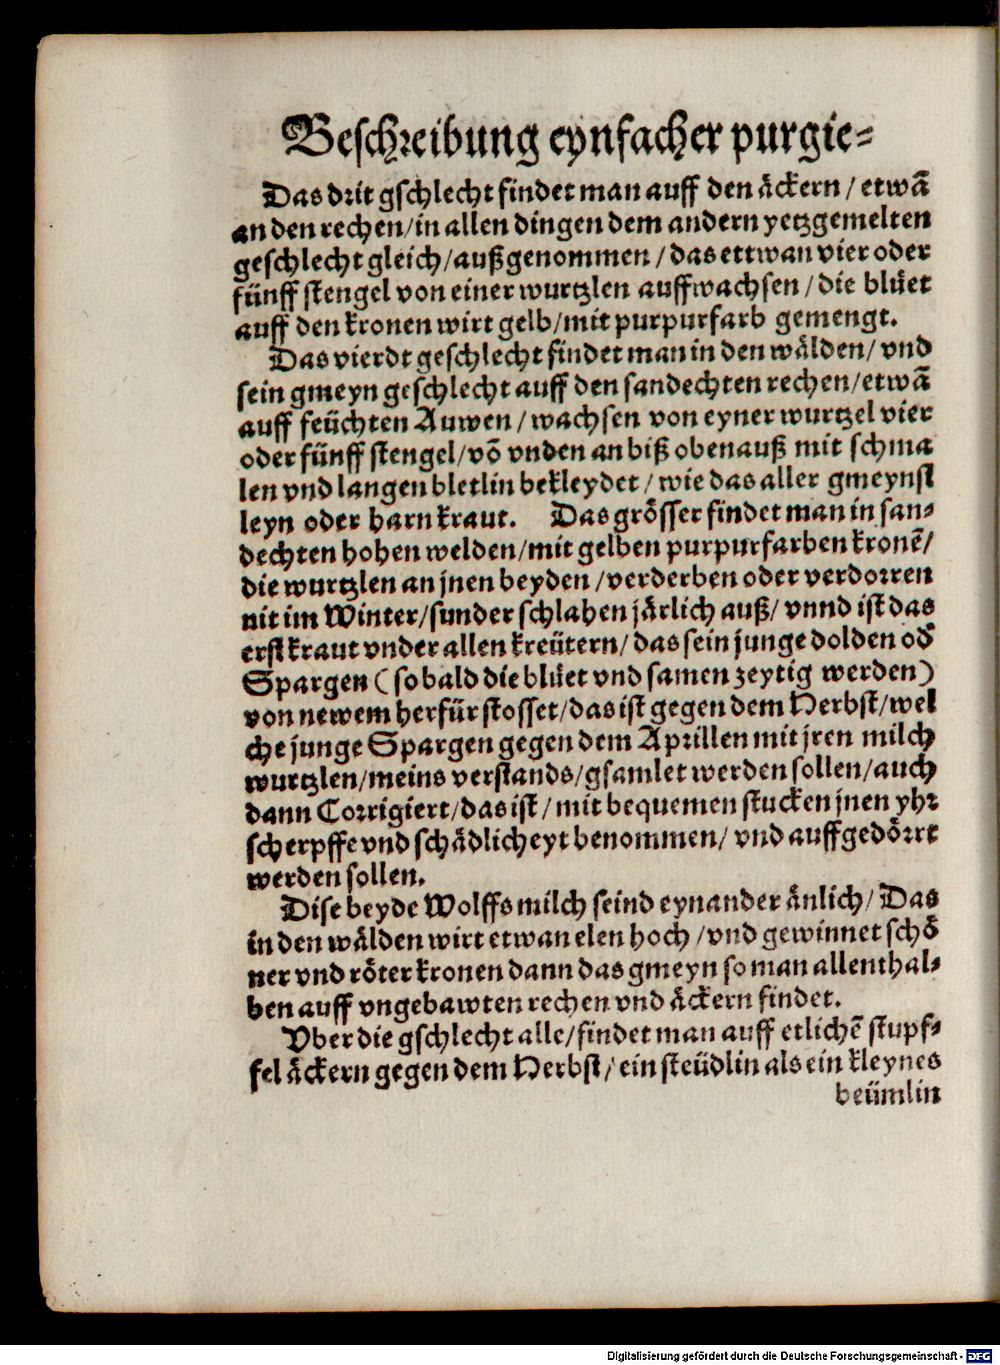 Beſchreibung eynfacher purgie⸗
Das drit gſchlecht findet man auff den åckern / etwā
an den rechen / in allen dingen dem andern yetzgemelten
geſchlecht gleich / außgenommen / das ettwan vier oder
fünff ſtengel von einer wurtzlen auffwachſen / die blůet
auff den kronen wirt gelb / mit purpurfarb gemengt.
Das vierdt geſchlecht findet man in den wålden / vnd
ſein gmeyn geſchlecht auff den ſandechten rechen / etwā
auff feüchten Auwen / wachſen von eyner wurtzel vier
oder fünff ſtengel / vō vnden an biß obenauß mit ſchma
len vnd langen bletlin bekleydet / wie das aller gmeynſt
leyn oder harnkraut. Das gröſſer findet man in ſan⸗
dechten hohen welden / mit gelben purpurfarben kronē /
die wurtzlen an jnen beyden / verderben oder verdorren
nit im Winter / ſunder ſchlahen jårlich auß / vnnd iſt das
erſt kraut vnder allen kreütern / das ſein junge dolden od̄
Spargen (ſo bald die blůet vnd ſamen zeytig werden)
von newem herfür ſtoſſet / das iſt gegen dem Herbſt / wel
che junge Spargen gegen dem Aprillen mit jren milch
wurtzlen / meins verſtands / gſamlet werden ſollen / auch
dann Corrigiert / das iſt / mit bequemen ſtucken jnen yhr
ſcherpffe vnd ſchådlicheyt benommen / vnd auffgedörrt
werden ſollen.
Diſe beyde Wolffs milch ſeind eynander ånlich / Das
in den wålden wirt etwan elen hoch / vnd gewinnet ſchö
ner vnd röter kronen dann das gmeyn ſo man allenthal⸗
ben auff vngebawten rechen vnd åckern findet.
Vber die gſchlecht alle / findet man auff etlichē ſtupf⸗
fel åckern gegen dem Herbſt / ein ſteüdlin als ein kleynes
beümlin
Digitalisierung gefördert durch die Deutsche Forschungsgemeinschaft - DFG